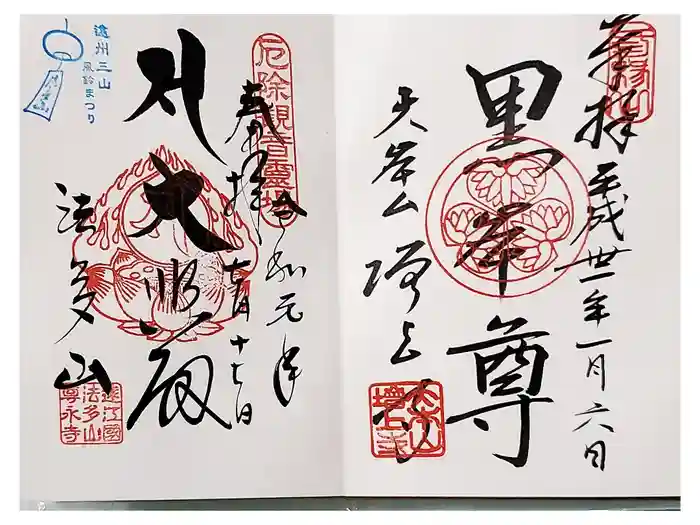 奉拝
平成卅一年一月六日
黒本尊
大本山
増上寺
大本山
増上寺
厄除観音霊場
奉拝
令和元年
七月十七日
大悲殿
法多山
遠江國
法多山
尊永寺
遠州三山
風鈴まつり